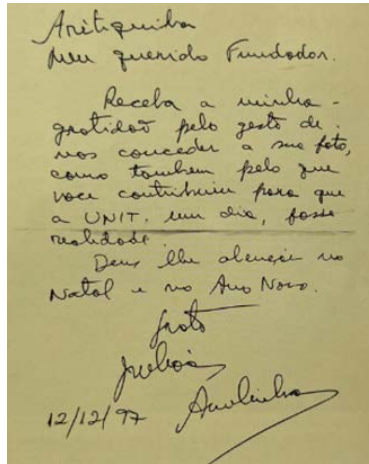 Meu querido Fundador.
Receba a minha
gratidão pelo gesto de
nos conceder a sua foto,
como tambem pelo que
voce contribuiu para que
a UNIT. um dia, fosse
realidade.
Deus lhe abençoe no
Natal e no Ano Novo.
Grato
12/12/97